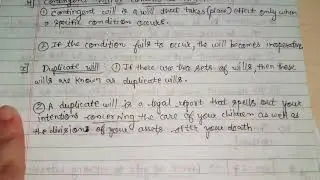 ① Contingent will is a will that takes (place) effect only when
a specific condition occurs.
② If the condition fails to occur, the will becomes inoperative
5) Duplicate will : ① If there are two sets of wills, then these
wills are known as duplicate wills.
② A duplicate will is a legal report that spells out your
intentions concerning the care of your children as well as
the divisions of your assets after your death